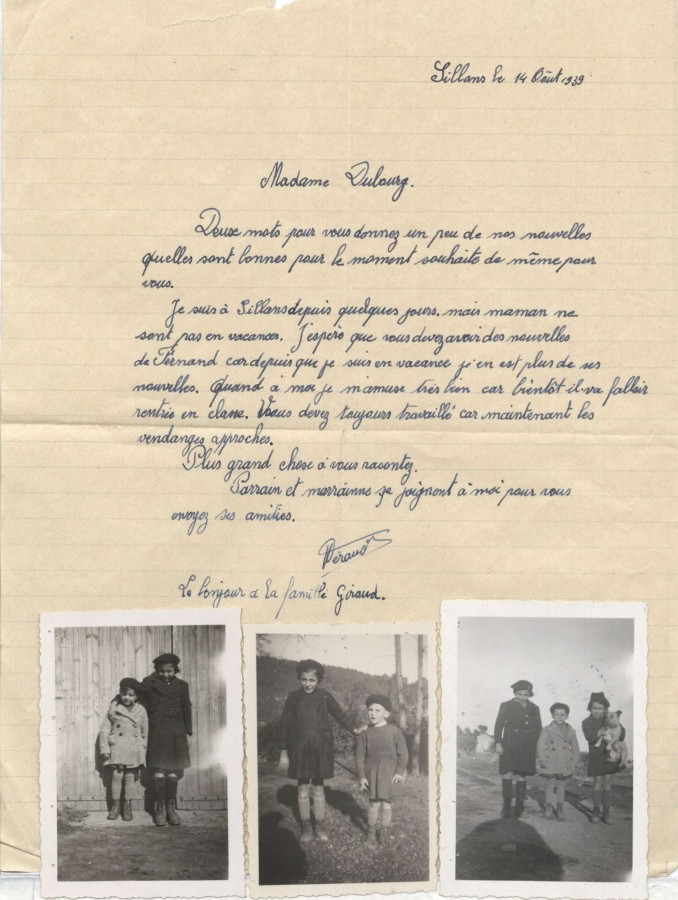 Sillans le 14 Août 1939
Madame Dubourg.
Deux mots pour vous donnez un peu de nos nouvelles
quelles sont bonnes pour le moment souhaite de même pour
vous.
Je suis à Sillans depuis quelques jours. mais maman ne
sont pas en vacances. J'espère que vous devez avoir des nouvelles
de Fernand car depuis que je suis en vacance j'en est plus de ses
nouvelles. Quand à moi je m'amuse très bien car bientôt il va falloir
rentrée en classe. Vous devez toujours travaillé car maintenant les
vendanges approches.
Plus grand chose à vous racontez.
Parrain et marrainne se joignent à moi pour vous
envoyez ses amitiés.
Le bonjour a la famille Giraud.